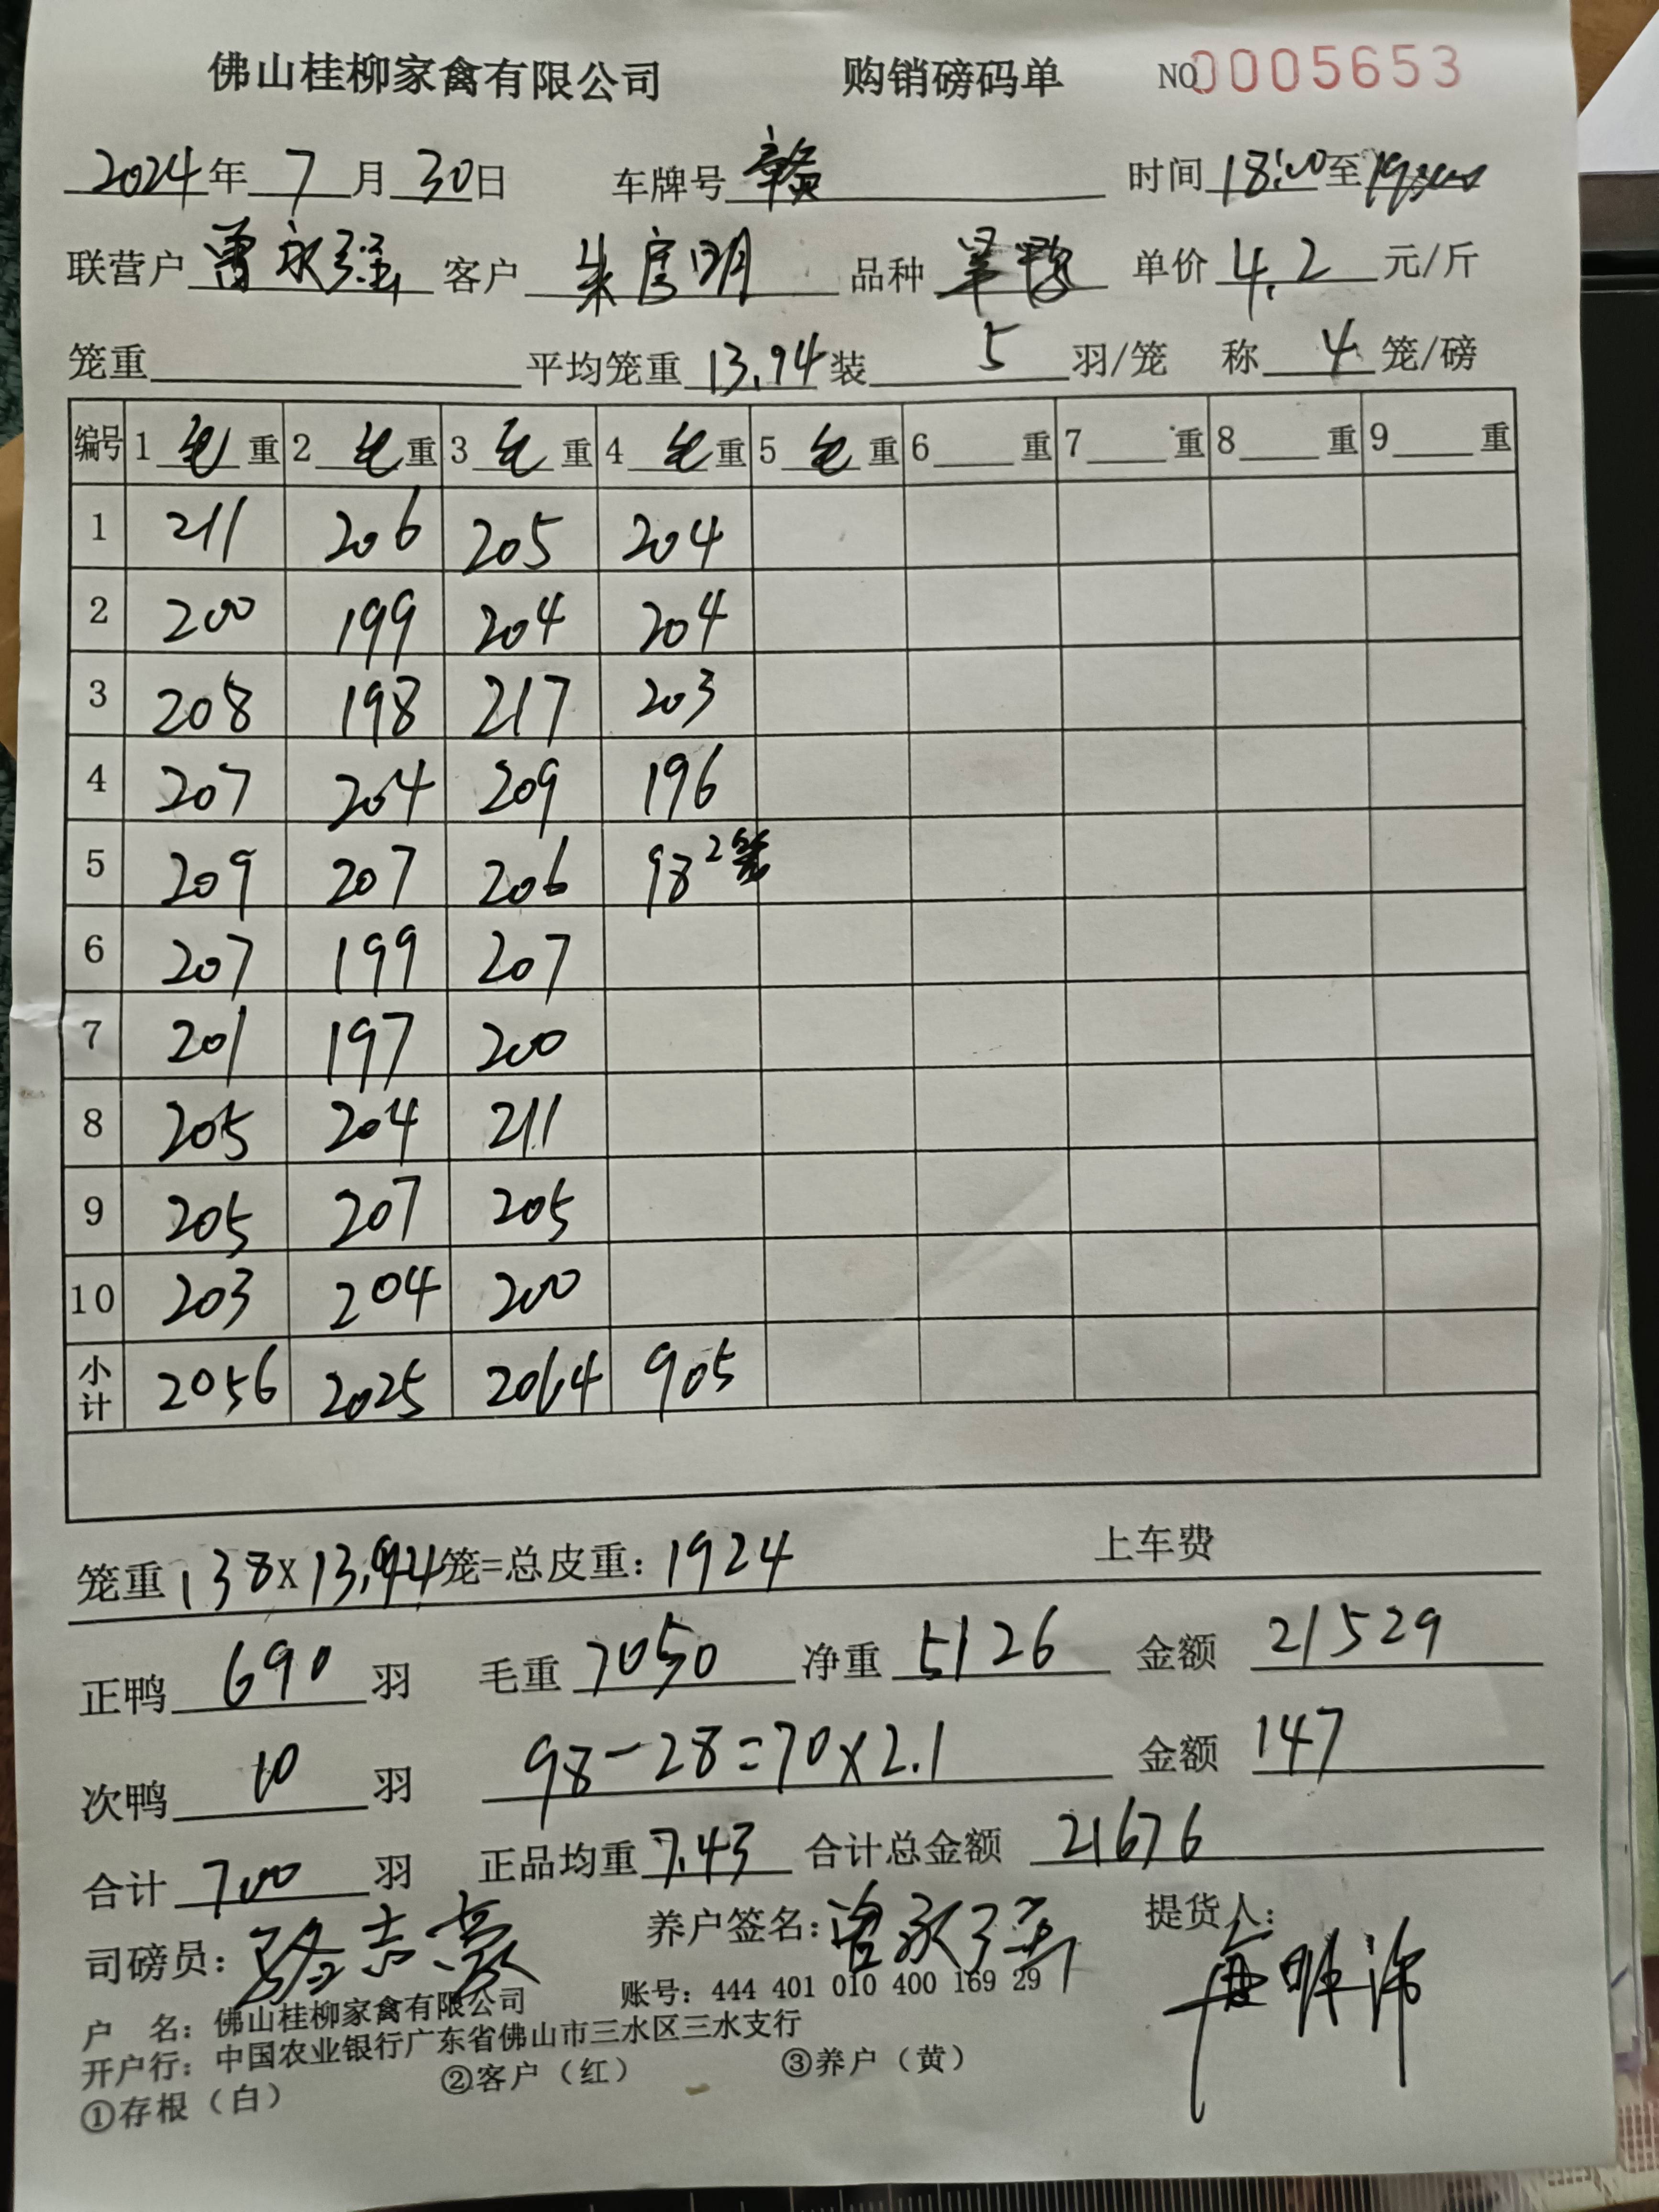 佛山桂柳家禽有限公司 购销磅码单 NO 0005653
2024年 7 月 30 日 车牌号 赣 时间 18:00 至
联营户 曾永强 客户 朱 明 品种 单价 4.2 元/斤
笼重 平均笼重 13.94 装 5 羽/笼 称 4 笼/磅
编号 1 毛 重 2 毛 重 3 毛 重 4 毛 重 5 毛 重 6 重 7 重 8 重 9 重
1 211 206 205 204
2 200 199 204 204
3 208 198 217 203
4 207 204 209 196
5 209 207 206 98 2笼
6 207 199 207
7 201 197 200
8 205 204 211
9 205 207 205
10 203 204 200
小计 2056 2025 2064 905
笼重 138 X 13.94 笼=总皮重: 1924 上车费
正鸭 690 羽 毛重 7050 净重 5126 金额 21529
次鸭 10 羽 98-28=70×2.1 金额 147
合计 700 羽 正品均重 7.43 合计总金额 21676
司磅员: 骆志豪 养户签名: 曾永强 提货人:
户 名: 佛山桂柳家禽有限公司 账号: 444 401 010 400 169 29
开户行: 中国农业银行广东省佛山市三水区三水支行
①存根（白） ②客户（红） ③养户（黄）